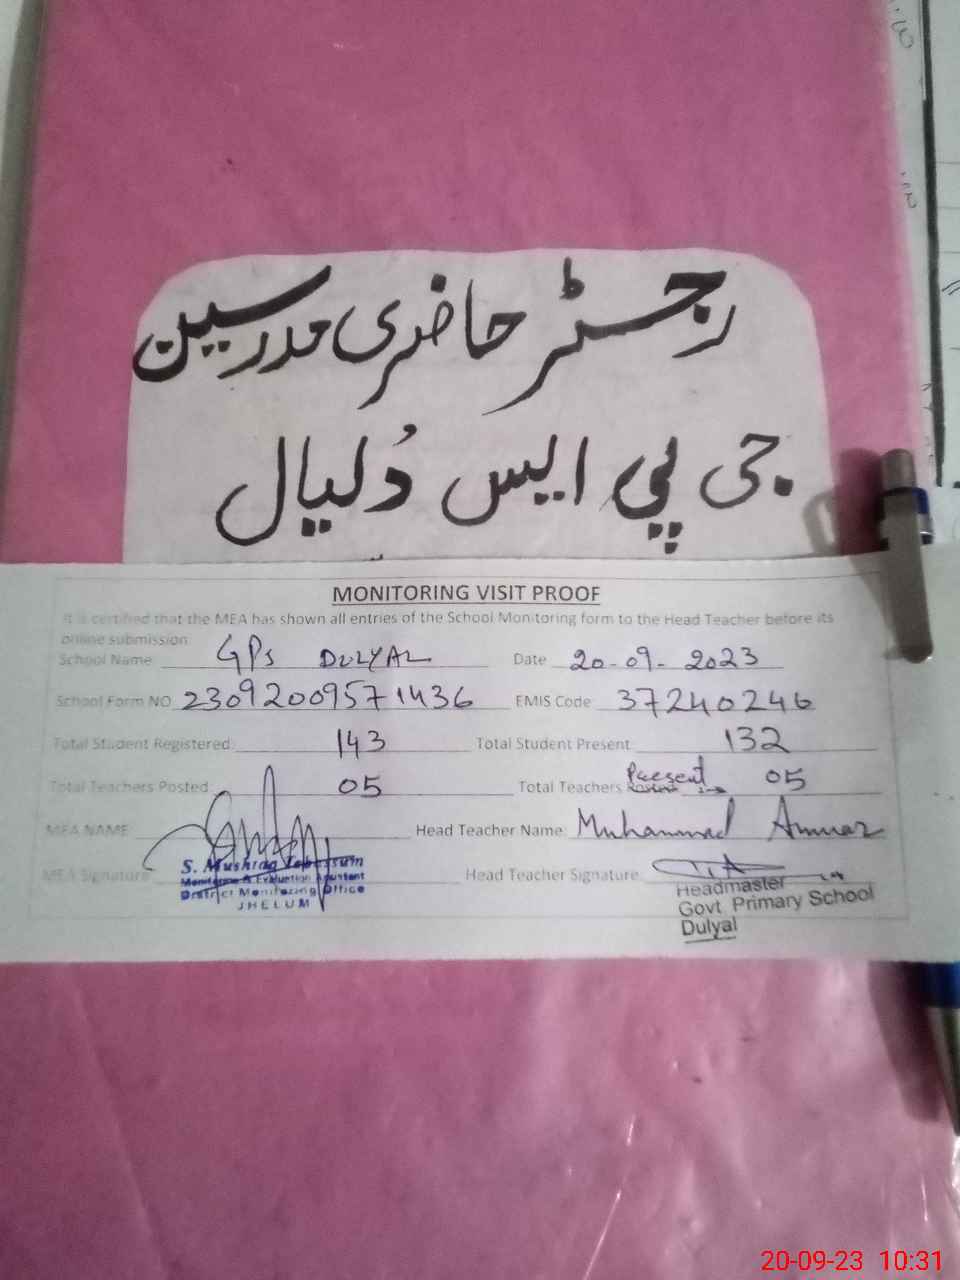 رجسٹر حاضری مدرسین
جی پی ایس دُلیال
MONITORING VISIT PROOF
It is certified that the MEA has shown all entries of the School Monitoring form to the Head Teacher before its
online submission
School Name GPS DULYAL Date 20-09-2023
School Form NO 23092009571436 EMIS Code 37240246
Total Student Registered: 143 Total Student Present: 132
Total Teachers Posted: 05 Total Teachers Present 05
MEA NAME: Head Teacher Name: Muhammad
MEA Signature: Head Teacher Signature:
S. Mushtaq Tabessum
Monitoring & Evaluation Assistant
District Monitoring Office
JHELUM
Headmaster
Govt Primary School
Dulyal
20-09-23 10:31